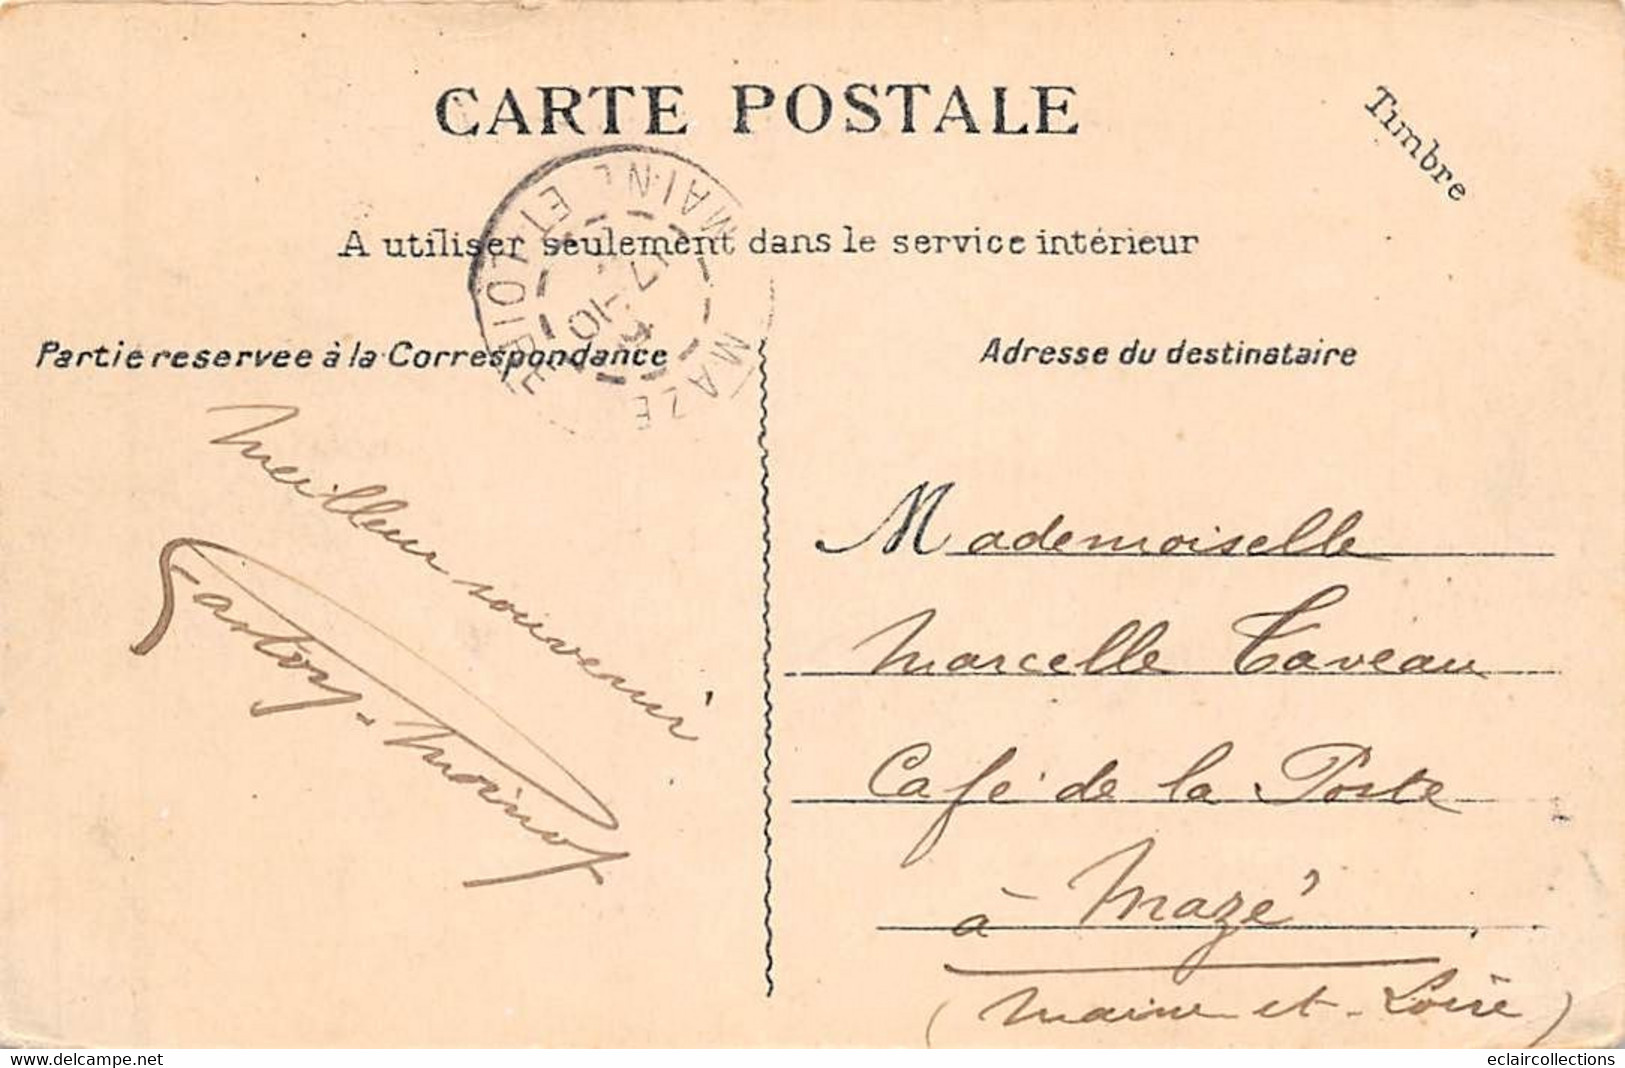 CARTE POSTALE
Timbre
A utiliser seulement dans le service intérieur
MAZÉ MAINE ET LOIRE
17 -10
Partie reservee à la Correspondance
Adresse du destinataire
Meilleur souvenir
Gaston Moinot
Mademoiselle
Marcelle Taveau
Café de la Poste
à Mazé
(Maine et Loire)
eclaircollections